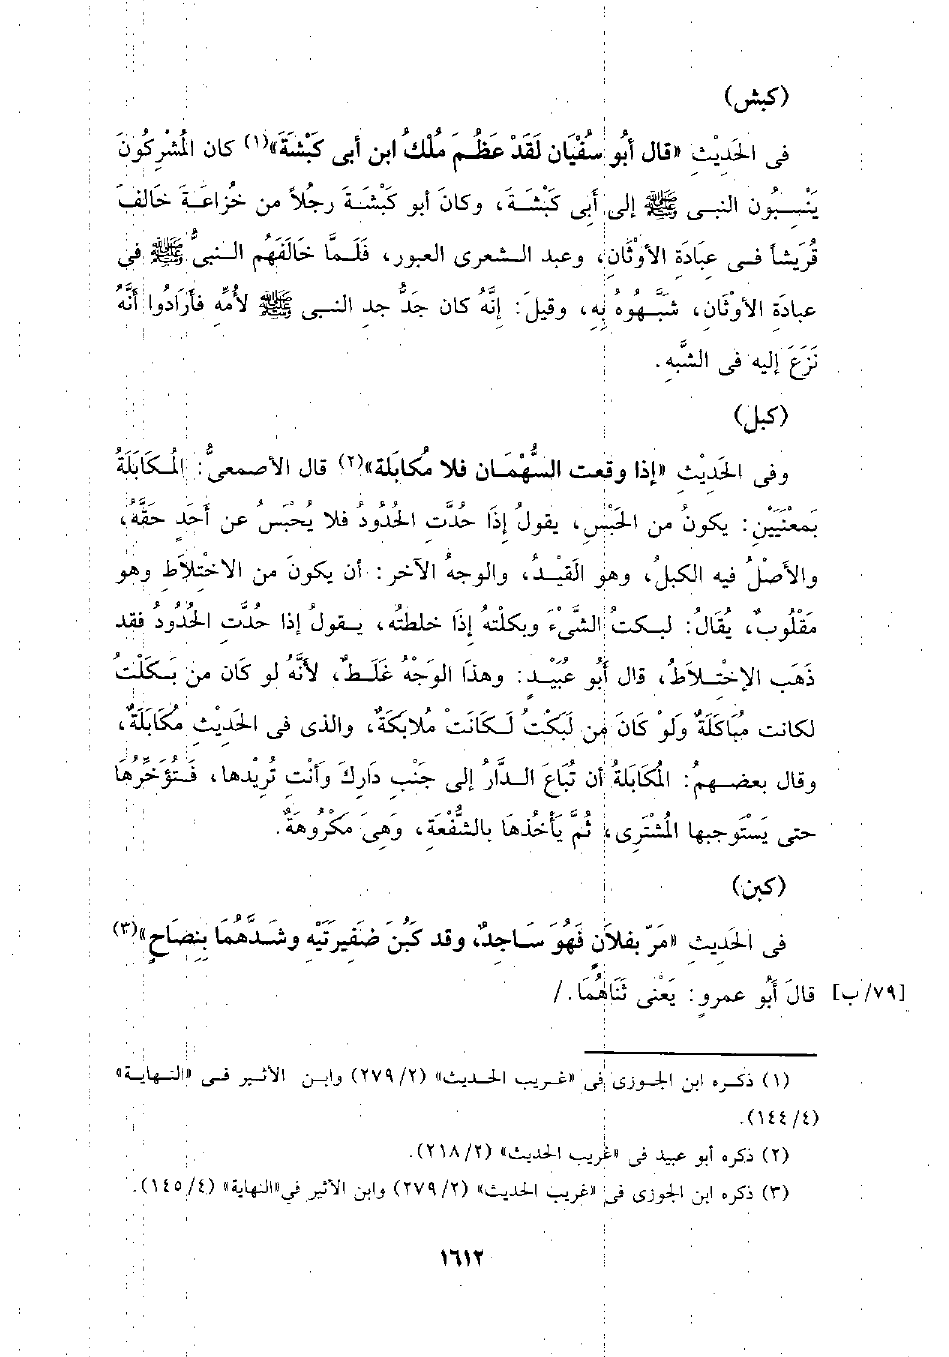 (كبش)
فى الحَدِيْثِ «قال أبُو سفْيَان لَقَدْ عَظُمَ مُلْكُ ابن أبى كَبْشَةَ»(١) كان المُشْرِكُونَ
يَنْسِبُون النبى ﷺ إلى أَبِى كَبْشَةَ، وكانَ أبو كَبْشَةَ رجُلاً من خُزَاعَةَ خَالَفَ
قُرَيْشاً فى عِبَادَةِ الأوْثَانِ، وعبد الشعرى العبور، فَلَمَّا خَالَفَهُم النبىُّ ﷺ فى
عبادَةِ الأوْثَانِ، شَبَّهُوهُ بِهِ، وقيلَ: إنَّهُ كان جَدُّ جد النبى ﷺ لأمِّه فأرَادُوا أنَّهُ
نَزَعَ إليه فى الشَّبَهِ.
(كبل)
وفى الحَدِيْثِ «إذا وقعت السُّهْمَان فلا مُكابَلة»(٢) قال الأصمعىُّ: المُكَابَلَةُ
بمَعْنَيَيْنِ: يكونُ من الحَبْسِ، يقولُ إذَا حُدَّتِ الحُدُودُ فلا يُحْبَسُ عن أَحَدٍ حَقَّهُ،
والأصْلُ فيه الكبلُ، وهو القَيْدُ، والوجهُ الآخر: أن يكونَ من الاخْتِلاَطِ وهو
مَقْلُوبٌ، يُقَالُ: لبكتُ الشَّىْءَ وبكلْتهُ إذَا خلطتُه، يقولُ إذا حدَّتِ الحُدُودُ فقد
ذَهَب الإخْتِلاَطُ، قال أَبُو عُبَيْدٍ: وهذَا الوَجْهُ غَلَطٌ، لأنَّهُ لو كَان من بَكَلْتُ
لكانت مُبَاكَلَةٌ ولَوْ كَانَ مِن لَبَكْتُ لَكَانَتْ مُلابَكَةٌ، والذى فى الحَدِيْثِ مُكَابَلَةٌ،
وقال بعضهمُ: المُكَابَلَةُ أن تُبَاعَ الدَّارُ إلى جَنْبِ دَارِكَ وأَنْتِ تُرِيْدها، فَتُؤَخِّرُهَا
حتى يَسْتَوجبها المُشْتَرِى، ثُمَّ يَأْخُذهَا بالشُّفْعَةِ، وَهِىَ مَكْرُوهَةٌ.
(كبن)
فى الحَدِيثِ «مَرّ بفلاَنٍ فَهُوَ سَاجِدٌ، وقد كَبَنَ ضَفِيرَتَيْهِ وشَدَّهُمَا بِنِصَاحٍ»(٣)
[٧٩/ب] قالَ أَبُو عمروٍ: يَعْنْى ثَنَاهُمَا./
(١) ذكره ابن الجوزى فى «غريب الحديث» (٢/ ٢٧٩) وابن الأثير فى «النهاية»
(٤/ ١٤٤).
(٢) ذكره أبو عبيد فى «غريب الحديث» (٢/ ٢١٨).
(٣) ذكره ابن الجوزى فى «غريب الحديث» (٢/ ٢٧٩) وابن الأثير فى «النهاية» (٤/ ١٤٥).
١٦١٢